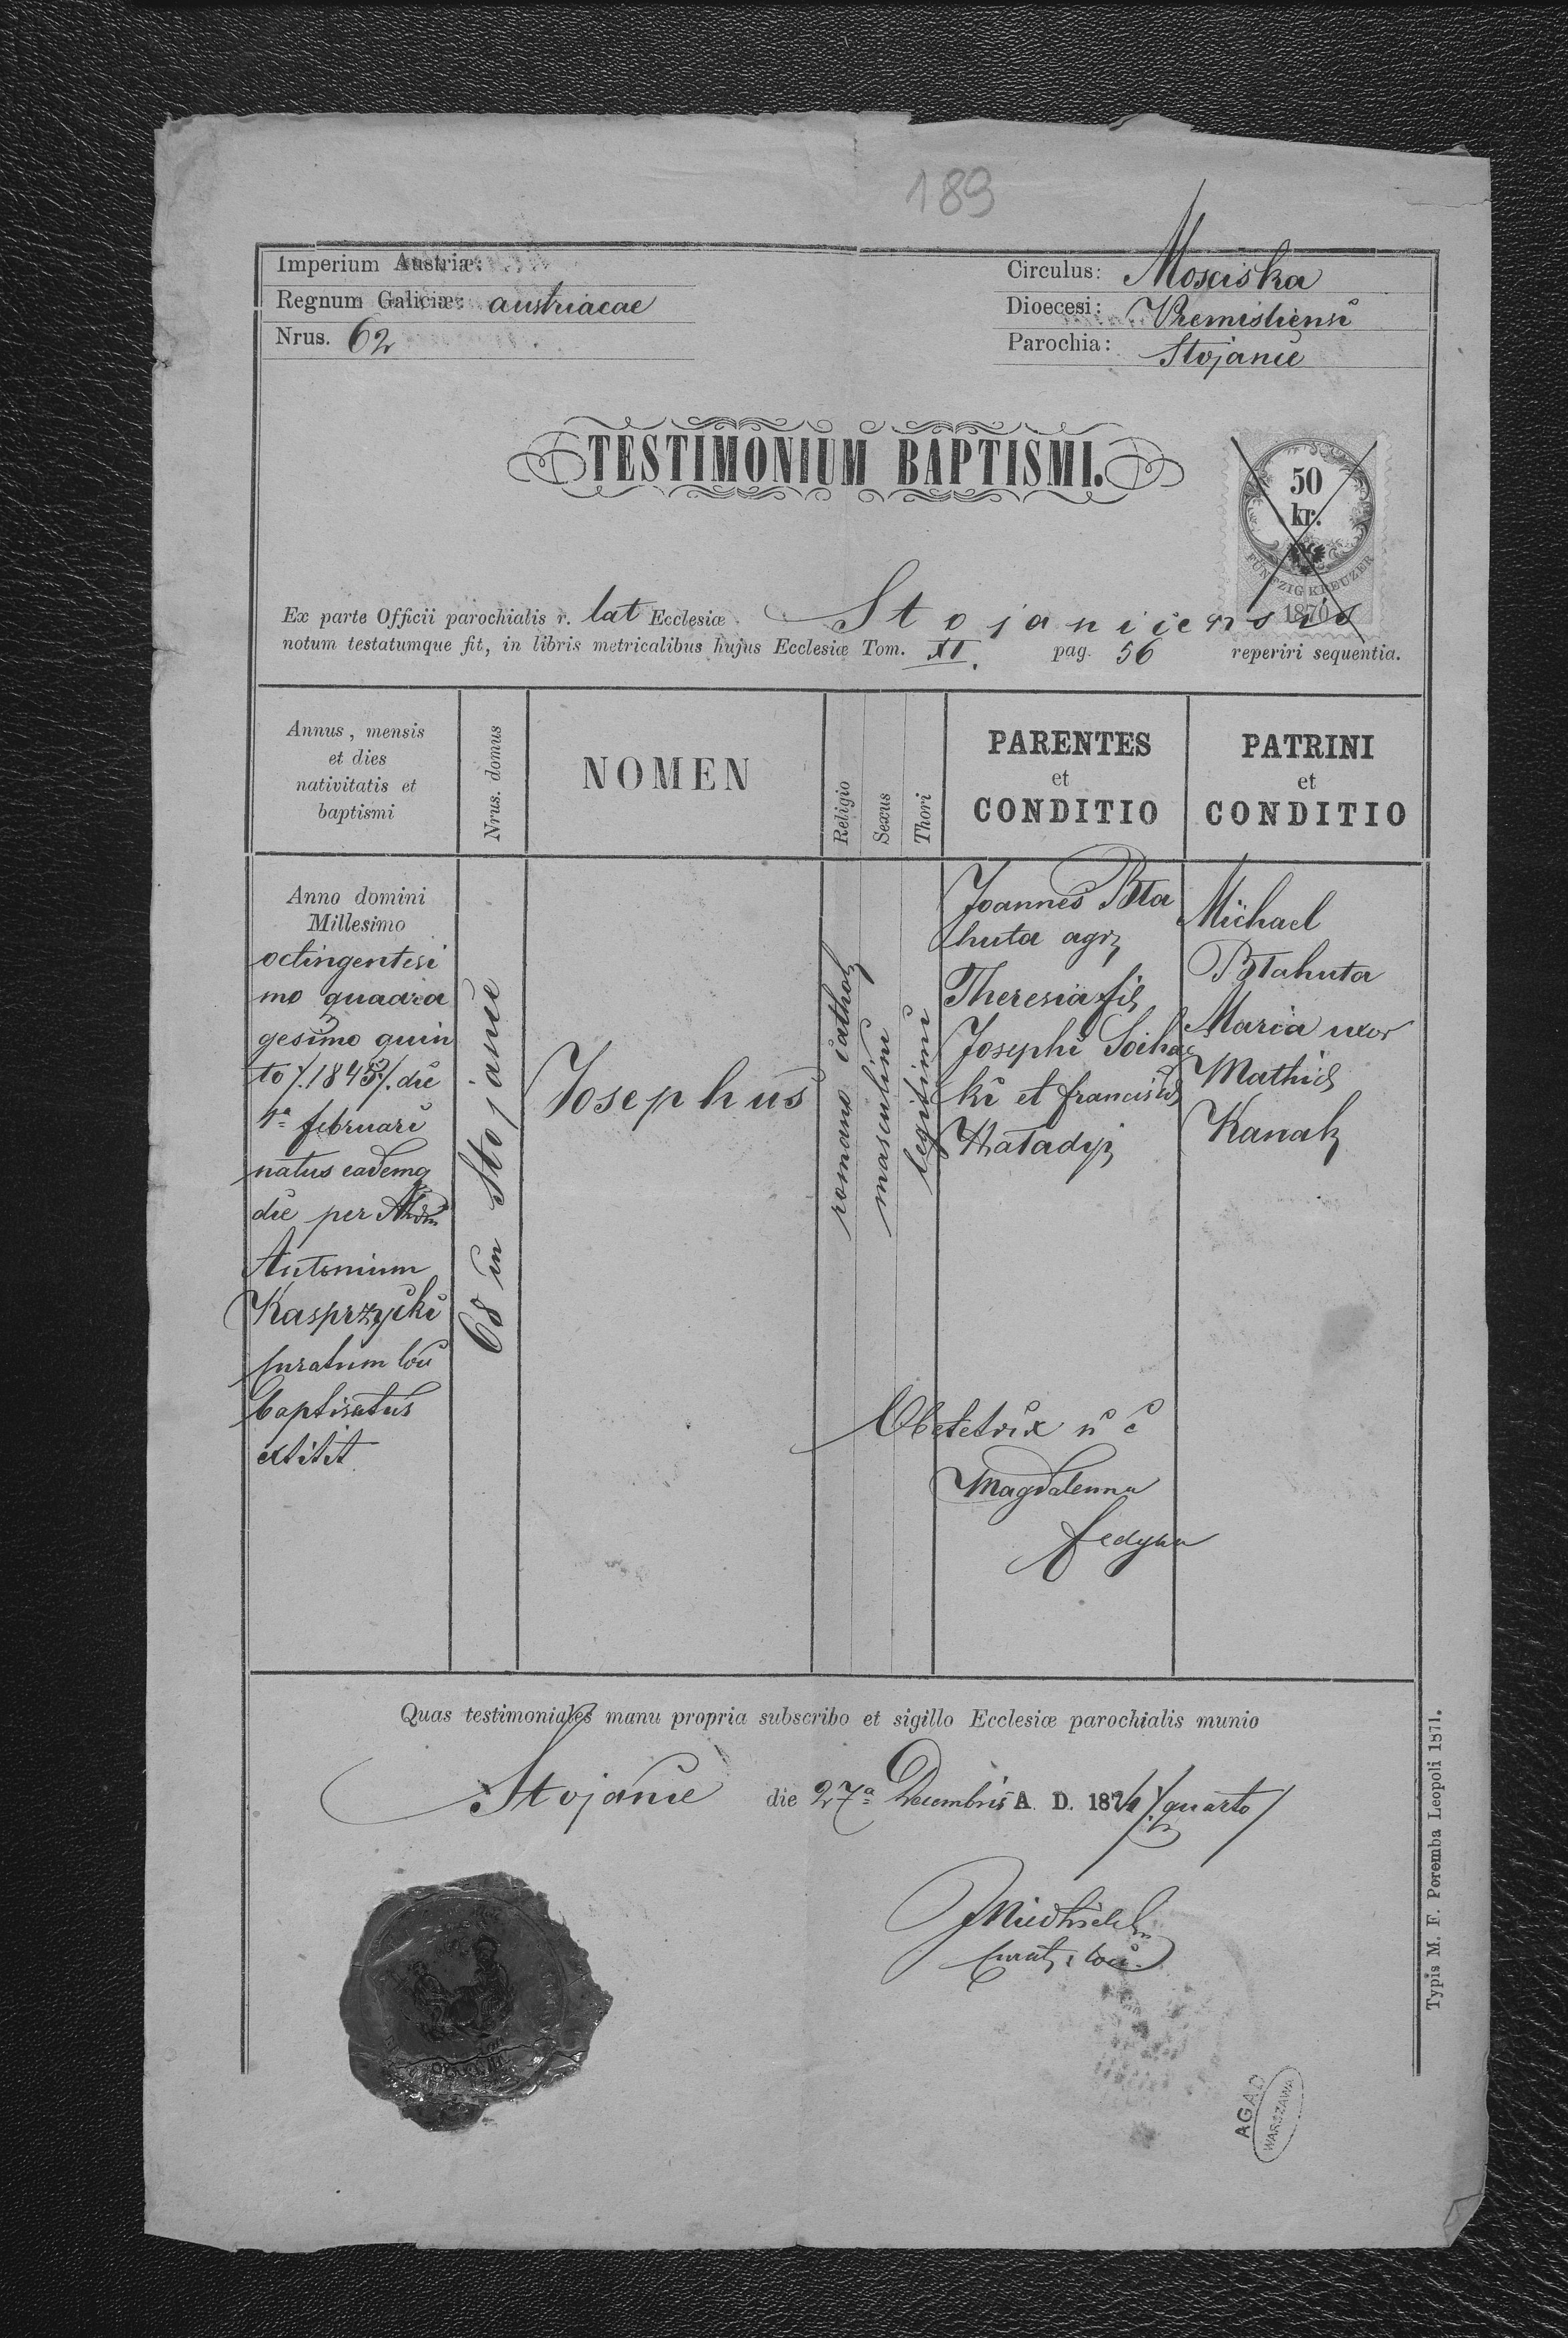 189
Imperium Austriæ:
Regnum Galiciæ: austriacae
Nrus. 62
Circulus: Mosciska
Dioecesi: Premisliensi
Parochia: Stojance
TESTIMONIUM BAPTISMI.
50
kr.
FÜNFZIG KREUZER
1870
Ex parte Officii parochialis r. lat Ecclesiæ Stojaniciensis
notum testatumque fit, in libris metricalibus hujus Ecclesiæ Tom. XI. pag. 56 reperiri sequentia.
Annus, mensis
et dies
nativitatis et
baptismi
Nrus. domus
NOMEN
Religio
Sexus
Thori
PARENTES
et
CONDITIO
PATRINI
et
CONDITIO
Anno domini
Millesimo
octingentesi
mo quadra
gesimo quin
to /. 1845 /. die
1ª februari
natus eademq
die per
Antonium
Kasprzycki
Curatum loci
baptisatus
extitit
68 in Stojance
Josephus
romano cathol
masculini
legitimi
Joannes Bła
huta agr
Theresia fil
Josephi Socha
ki et francisc
Haładyj
Michael
Błahuta
Maria uxor
Mathie
Kanak
Obstetrix n c
Magdalenna
fedyna
Quas testimoniales manu propria subscribo et sigillo Ecclesiæ parochialis munio
Stojance die 27ª Decembris A. D. 1874 /. quarto /
Curat. loci
AGAD
WARSZAWA
Typis M. F. Poremba Leopoli 1871.